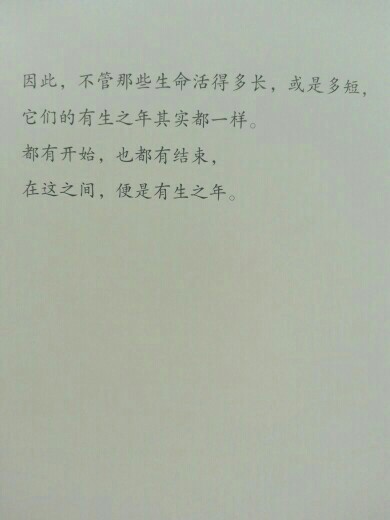 因此，不管那些生命活得多长，或是多短，
它们的有生之年其实都一样。
都有开始，也都有结束，
在这之间，便是有生之年。